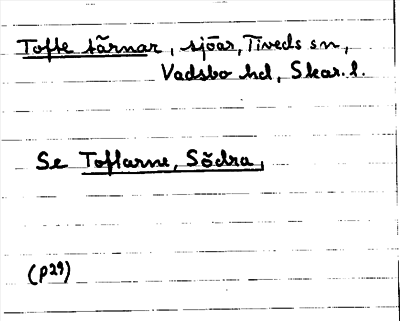 Tofte tärnar, sjöar, Tiveds sn,
Vadsbo hd, Skar. l.
Se Toftarne, Södra,
(P29)